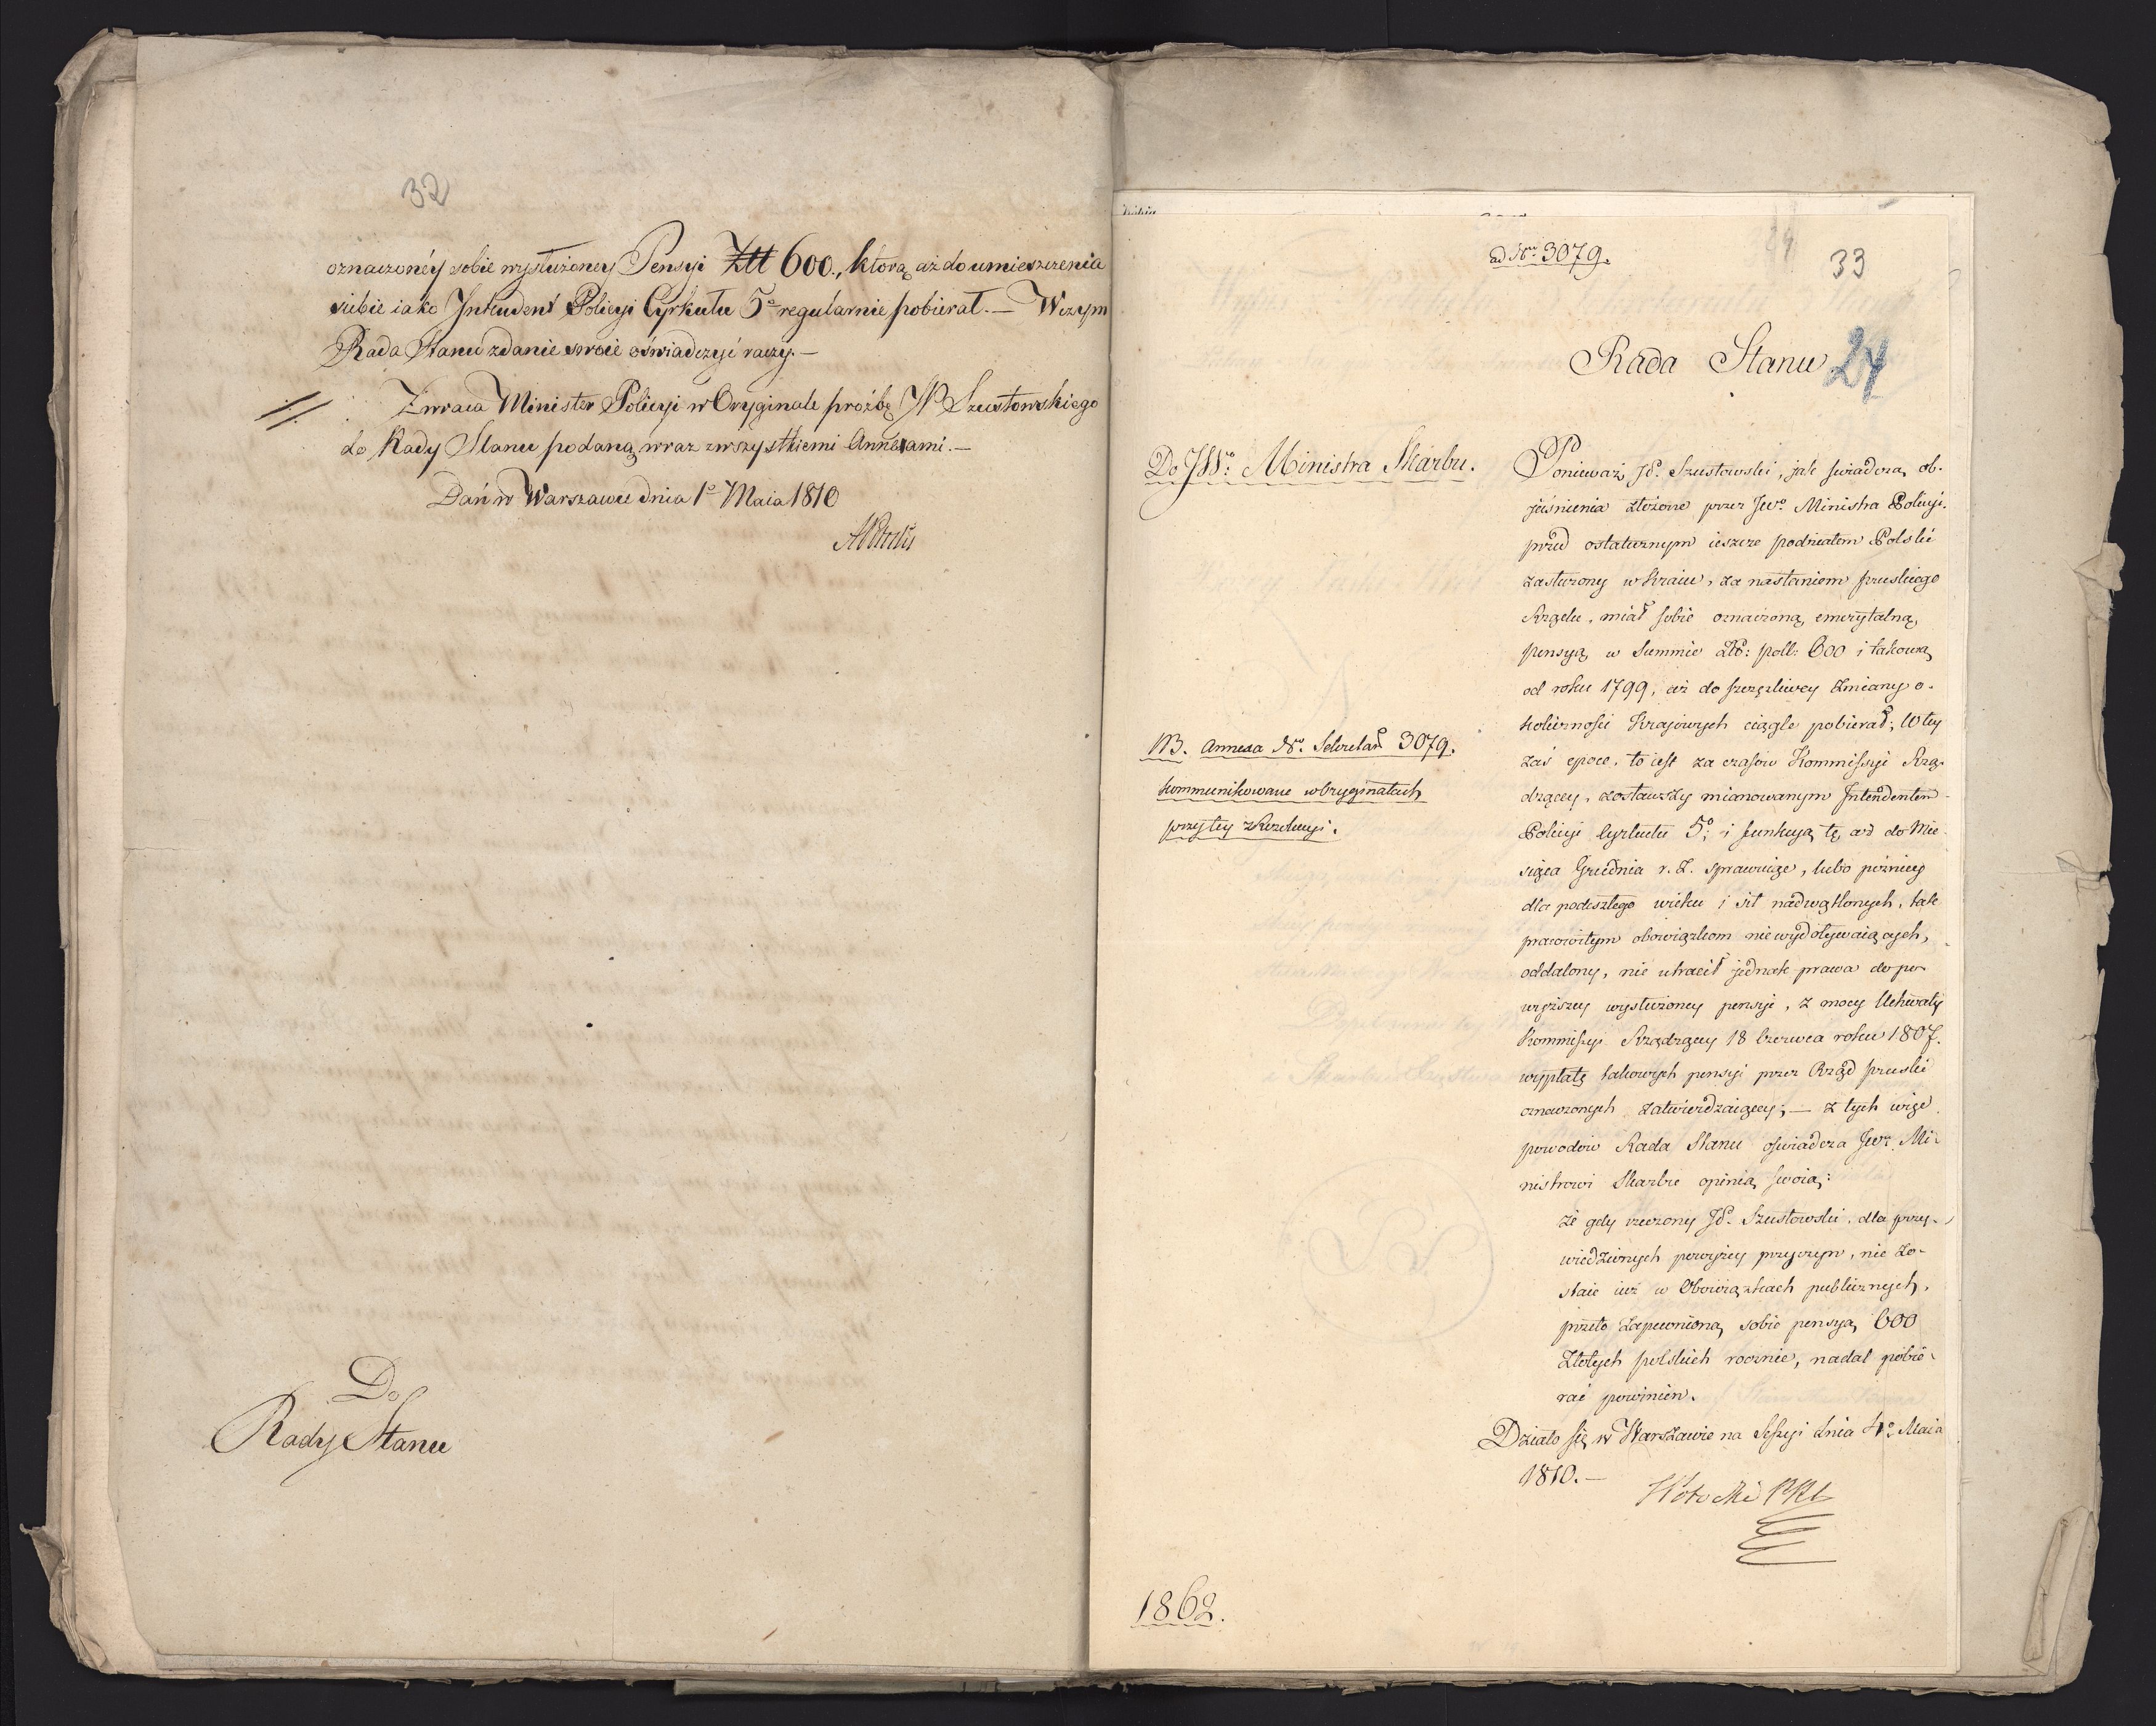 32
oznaczonéy sobie wysłużoney Pensyi Złł 600., którą aż do umieszczenia
siebie iako Intendent Policyi Cyrkułu 5º regularnie pobierał. — W czym
Rada Stanu zdanie swoie oświadczyć raczy. —
Zwraca Minister Policyi w Oryginale prożbę JP Szustowskiego
do Rady Stanu podaną, wraz z wszystkiemi Annexami. —
Dań w Warszawie dnia 1º Maia 1810
Do
Rady Stanu
ad Nrum 3079.
33
Rada Stanu
24
Do JWº: Ministra Skarbu.
NB. Annexa Nº. Sekretar 3079.
kommunikowane w Oryginałach
przy tey Rezolucyi.
Ponieważ JP. Szustowski, jak świadczą ob-
jaśnienia złożone przez JWº. Ministra Policyi.
przed ostatecznym ieszcze podziałem Polski
zasłużony w Kraiu, za nastaniem pruskiego
Rządu, miał sobie oznaczoną emerytalną,
pensyą w Summie Złł: poll: 600 i takową
od roku 1799, aż do szczęśliwey zmiany o-
koliczności Krajowych ciągle pobierał; W tey
zaś epoce, to iest za czasów Kommissyi Rzą-
dzącey, zostawszy mianowanym Intendentem
Policyi Cyrkułu 5º; i funkcyą tę aż do Mie-
siąca Grudnia r. z. sprawuiąc, lubo późniey
dla podeszłego wieku i sił nadwątlonych, tak
pracowitym obowiązkom niewydoływaiących,
oddalony, nie utracił jednak prawa do po-
wyższey wysłużoney pensyi, z mocy Uchwały
Kommissyi Rządzącey 18 Czerwca roku 1807.
wypłatę takowych pensyi przez Rząd pruski
oznaczonych zatwierdzaiącey; — z tych więc
powodów Rada Stanu oświadcza JWu. Mi-
nistrowi Skarbu opinią swoią:
że gdy rzeczony JP. Szustowski, dla przy-
wiedzionych powyżey przyczyn, nie zo-
staie iuż w Obowiązkach publicznych,
przeto zapewnioną sobie pensyą 600
Złotych polskich rocznie, nadal pobie-
rać powinien.
Działo się w Warszawie na Sessyi dnia 4º Maia
1810. —
1862.